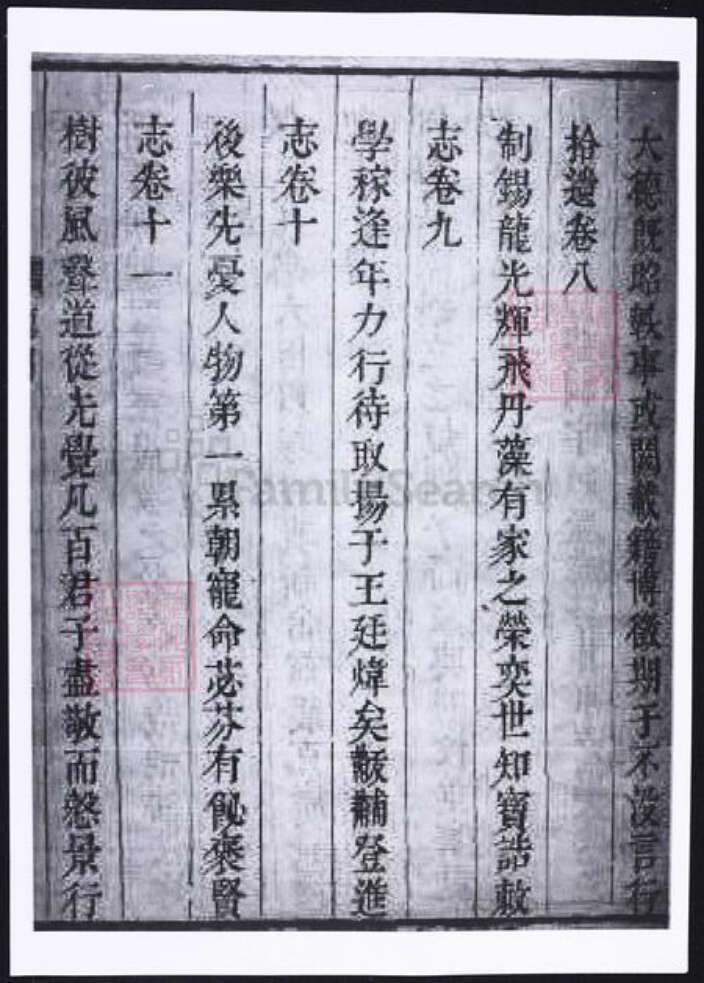 大德既昭軼事或闕載籍博徵期于不沒言行
拾遺卷八
制錫龍光輝飛丹藻有家之榮奕世知寶誥敕
志卷九
學稼逢年力行待取揚于王廷煒矣黻黼登進
志卷十
後樂先憂人物第一累朝寵命苾芬有飶褒賢
志卷十一
樹彼風聲道從先覺凡百君子盡敬而愨景行
FamilySearch